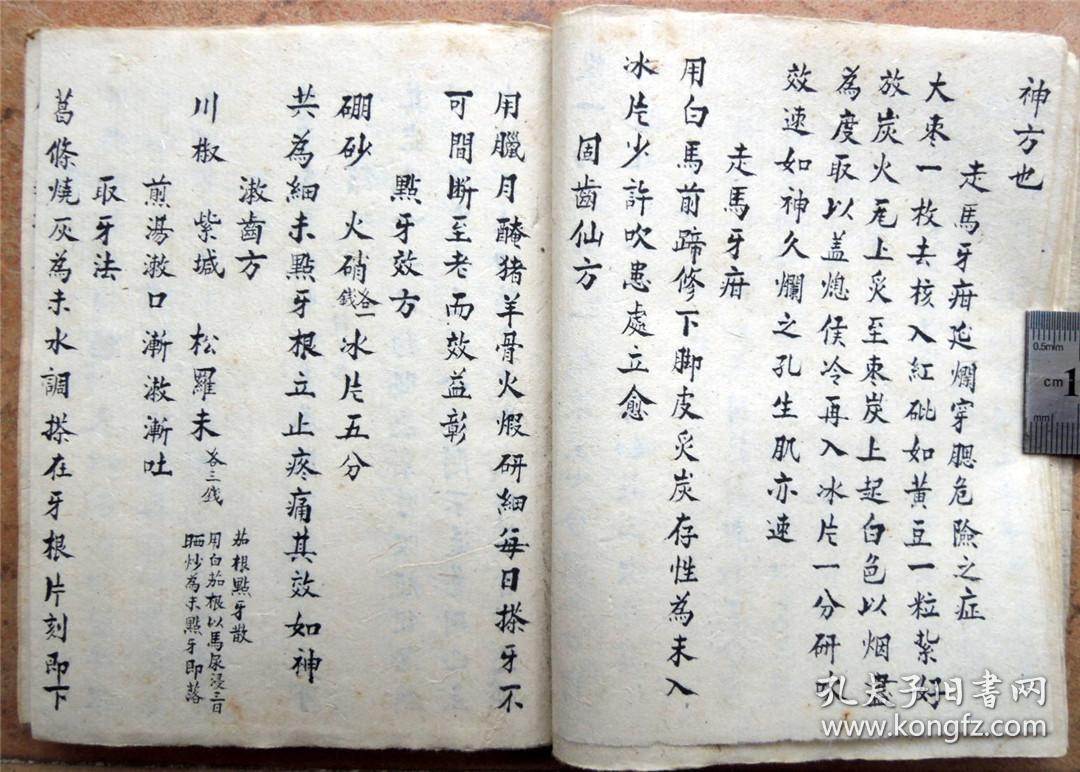 神方也
走馬牙疳延爛穿腮危險之症
大枣一枚去核入紅砒如黃豆一粒紮好
放炭火瓦上炙至枣炭上起白色以烟盡
為度取以盖熄候冷再入冰片一分研吹
效速如神久爛之孔生肌亦速
走馬牙疳
用白馬前蹄修下脚皮炙炭存性為末入
冰片少許吹患處立愈
固齒仙方
用臘月醃猪羊骨火煅研細每日搽牙不
可間断至老而效益彰
點牙效方
硼砂 火硝各一錢 冰片五分
共為細末點牙根立止疼痛其效如神
漱齒方
川椒 紫堿 松羅末各三錢
煎湯漱口漸漱漸吐
茄根點牙散
用白茄根以馬尿浸三日
晒炒為末點牙即落
取牙法
葛條燒灰為末水調搽在牙根片刻即下
0.5mm
cm 1
mm
孔夫子旧書网
www.kongfz.com